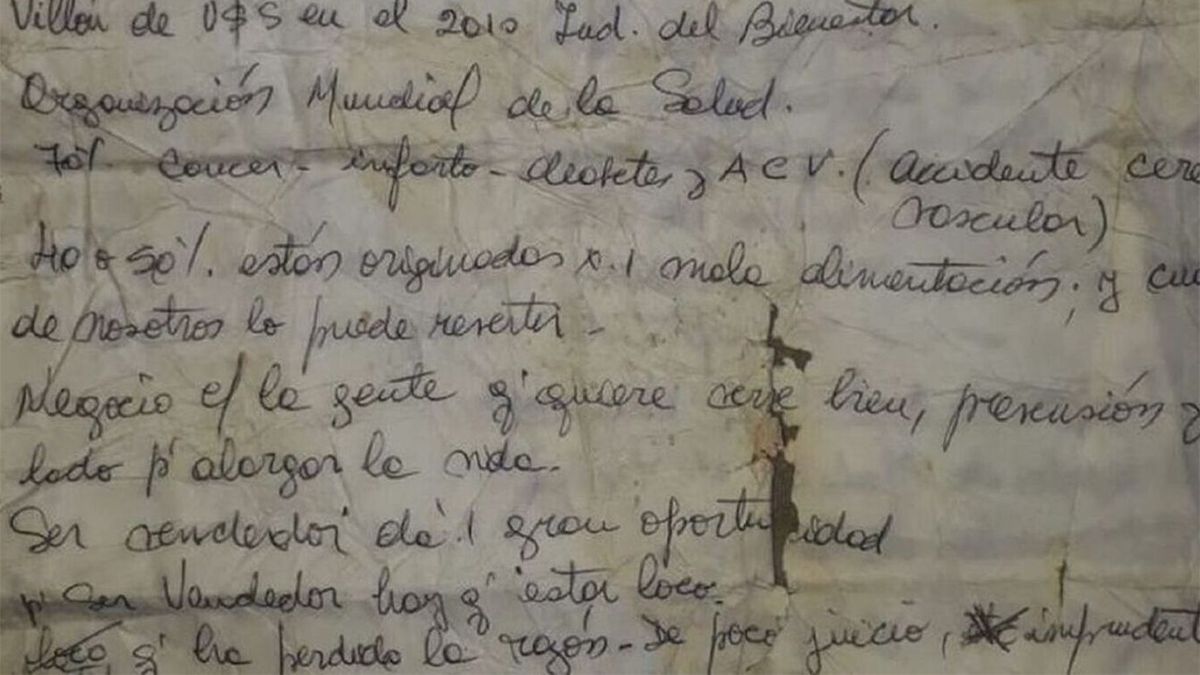 Villón de U$S en el 2010 Ind. del Bienestar.
Organización Mundial de la Salud.
70% cancer - infarto - diabetes y A C V. ( accidente cere
vascular)
40 o 50%. están originados x. 1 mala alimentación; y cu
de nosotros lo puede revertir -
Negocio c/ la gente q' quiere verse bien, prevensión y
lado p' alargar la vida.
Ser vendedor dá 1 gran oportunidad
p' ser Vendedor hay q' estar loco.
loco, q' ha perdido la razón - De poco juicio, imprudent